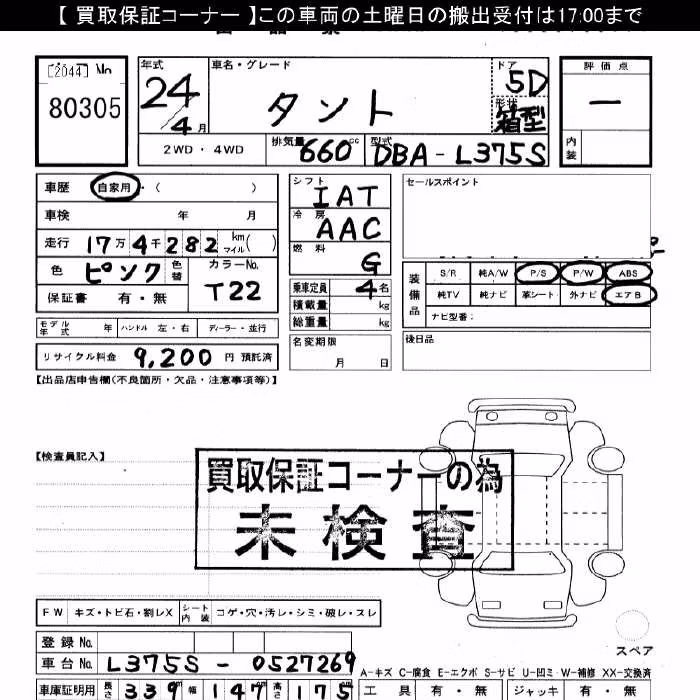 【 買取保証コーナー 】この車両の土曜日の搬出受付は17:00まで
[2044] No
80305
年式
24
4 月
車名・グレード
タント
ドア
5D
形状
箱型
評価点
内装
2WD ・ 4WD
排気量 660 cc
型式 DBA-L375S
車歴 自家用 ・ ( )
車検 年 月
走行 17万 4千 282 km マイル ( )
色 ピンク 色替 カラーNo. T22
保証書 有 ・ 無
モデル年式 年 ハンドル 左 ・ 右 ディーラー ・ 並行
リサイクル料金 9,200 円 預託済
シフト IAT
冷房 AAC
燃料 G
乗車定員 4 名
積載量 kg
総重量 kg
名変期限
月 日
セールスポイント
装備品
S/R 純A/W P/S P/W ABS
純TV 純ナビ 革シート 外ナビ エアB
ナビ型番:
後日品
【出品店申告欄(不良箇所・欠品・注意事項等)】
【検査員記入】
買取保証コーナーの為
未検査
FW キズ・トビ石・割レX シート内装 コゲ・穴・汚レ・シミ・破レ・スレ
登録 No.
車台 No. L375S - 0527269
スペア
A-キズ C-腐食 E-エクボ S-サビ U-凹ミ W-補修 XX-交換済
車庫証明用 長さ 339 幅 147 高さ 175
工具 有 ・ 無 ジャッキ 有 ・ 無